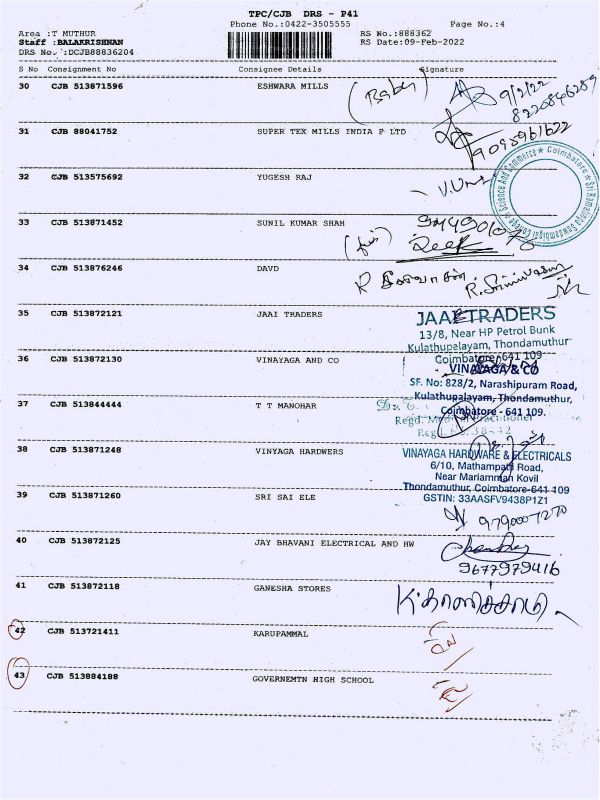 TPC/CJB DRS - P41
Phone No.:0422-3505555 Page No.:4
Area :T MUTHUR RS No.:888362
Staff :BALAKRISHNAN RS Date:09-Feb-2022
DRS No. :DCJB88836204
S No Consignment No Consignee Details Signature
30 CJB 513871596 ESHWARA MILLS (Baby) 9/2/22
8220846289
31 CJB 88041752 SUPER TEX MILLS INDIA P LTD
9095961622
32 CJB 513575692 YUGESH RAJ
Coimbatore
33 CJB 513871452 SUNIL KUMAR SHAH
34 CJB 513876246 DAVD R. Srinivasan
35 CJB 513872121 JAAI TRADERS
JAAI TRADERS
13/8, Near HP Petrol Bunk
Kulathupalayam, Thondamuthur
Coimbatore-641 109
36 CJB 513872130 VINAYAGA AND CO
VINAYAGA & CO
SF. No: 828/2, Narashipuram Road,
Kulathupalayam, Thondamuthur,
Coimbatore - 641 109.
37 CJB 513844444 T T MANOHAR
38 CJB 513871248 VINYAGA HARDWERS
VINAYAGA HARDWARE & ELECTRICALS
6/10, Mathampatti Road,
Near Mariamman Kovil
Thondamuthur, Coimbatore-641 109
GSTIN: 33AASFV9438P1Z1
39 CJB 513871260 SRI SAI ELE
9790007270
40 CJB 513872125 JAY BHAVANI ELECTRICAL AND HW
9677979416
41 CJB 513872118 GANESHA STORES
42 CJB 513721411 KARUPAMMAL
43 CJB 513884188 GOVERNEMTN HIGH SCHOOL